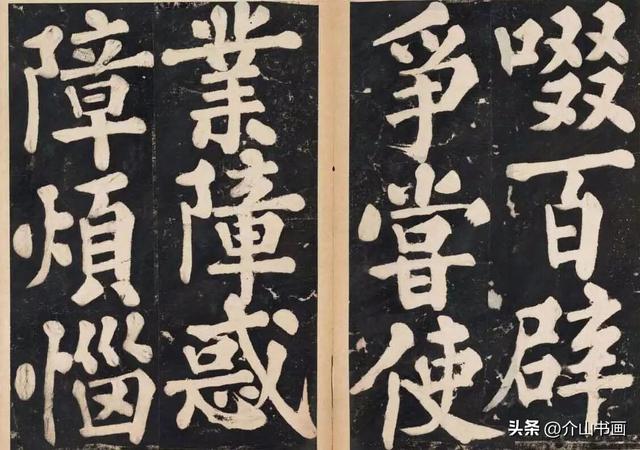 啜百辟
爭嘗使
業障惑
障煩惱
头条 @介山书画